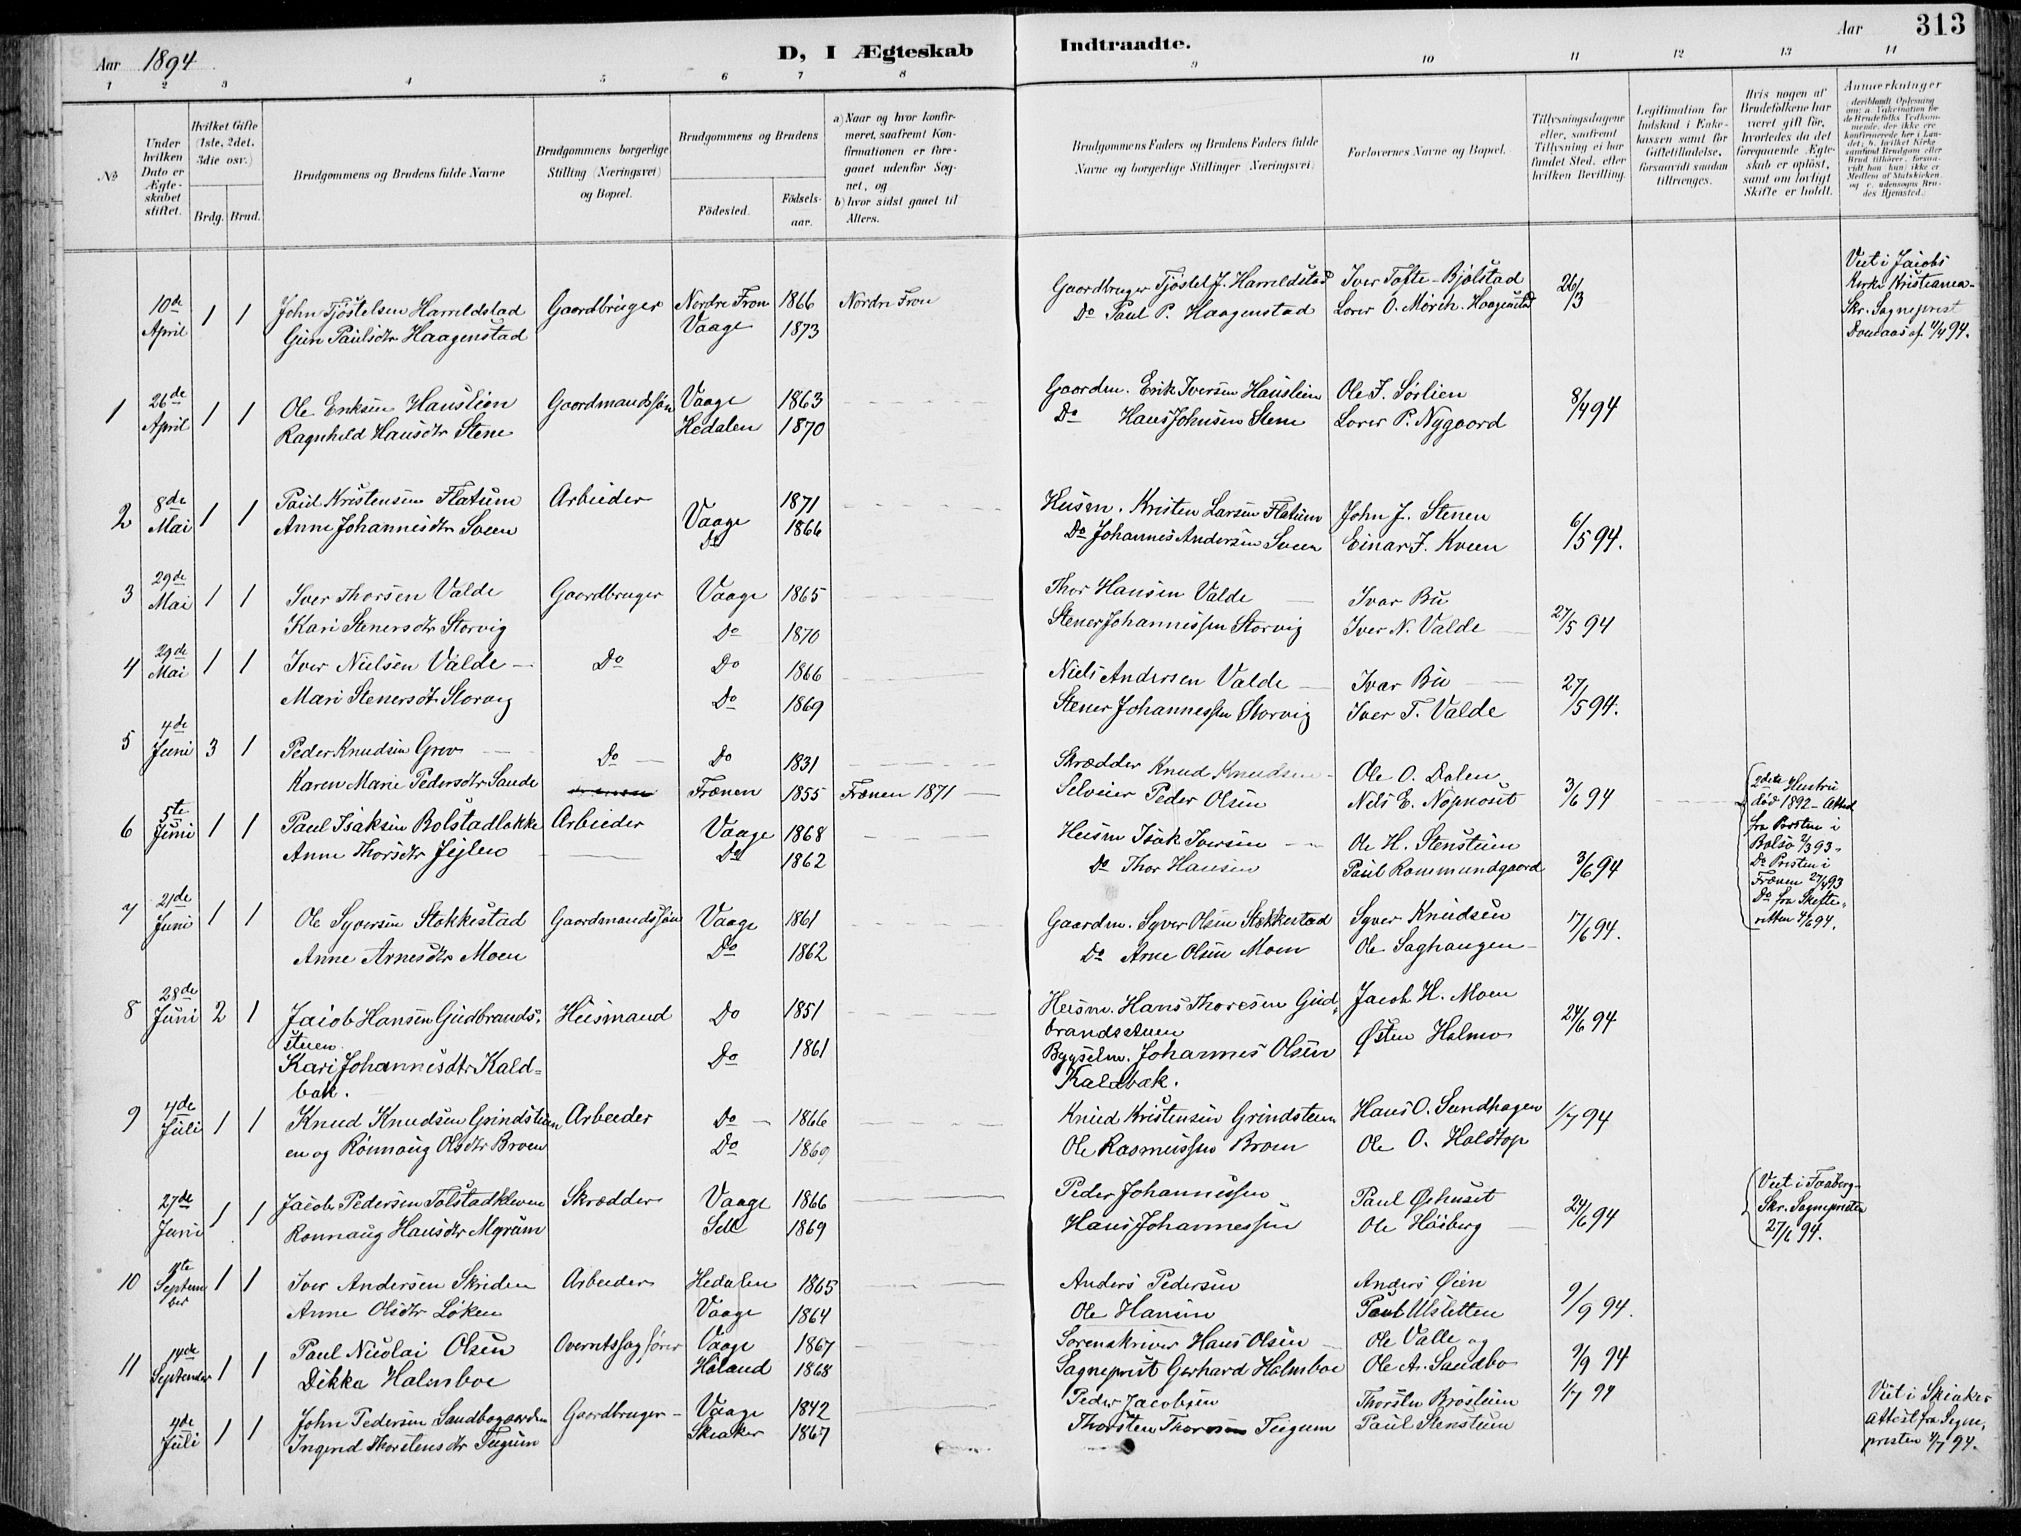 Aar 1894
D, I Ægteskab Indtraadte.
Aar 313
1 2 3 4 5 6 7 8 9 10 11 12 13 14
No
Under hvilken Dato er Ægteskabet stiftet.
Hvilket Gifte (1ste, 2det, 3die osv.)
Brdg. Brud.
Brudgommens og Brudens fulde Navne
Brudgommens borgerlige Stilling (Næringsvei) og Bopæl.
Brudgommens og Brudens
Födested. Födselsaar.
a) Naar og hvor konfirmeret, saafremt Konfirmationen er foregaaet udenfor Sognet, og
b) hvor sidst gaaet til Alters.
Brudgommens Faders og Brudens Faders fulde Navne og borgerlige Stillinger (Næringsvei)
Forlovernes Navne og Bopæl.
Tillysningsdagene eller, saafremt Tillysning ei har fundet Sted, efter hvilken Bevilling.
Legitimation for Indskud i Enkekassen samt for Giftetilladelse, forsaavidt saadan tiltrænges.
Hvis nogen af Brudefolkene har været gift för, hvorledes da det foregaaende Ægteskab er oplöst, samt om lovligt Skifte er holdt.
Anmærkninger
10de April 1 1 John Tjöstelsen Harreldstad Gaardbruger Nordre Fron 1866 Nordre Fron Gaardbruger Tjöstel J. Harreldstad Iver Tofte-Bjölstad 26/3
Guri Paulsdtr Haagenstad Vaage 1873 Do Paul P. Haagenstad Lorer O. Mörch. Haagenstad
Viet i Jacobs
Kirke Kristiania-
Skr. Sogneprest
1 26de April 1 1 Ole Eriksen Hauslien Gaardmandssøn Vaage 1863 Gaardm. Erik Iversen Hauslien Ole J. Sørlien 8/4 94
Ragnhild Hansdtr Stene Hedalen 1870 Do Hans Johnsen Stene Lorer P. Nygaard
2 8de Mai 1 1 Paul Kristensen Flatum Arbeider Vaage 1871 Husm. Kristen Larsen Flatum John J. Stenen 6/5 94.
Anne Johannesdtr Sveen Do 1866 Do Johannes Andersen Sveen Einar J. Kveen
3 29de Mai 1 1 Iver Thorsen Valde Gaardbruger Vaage 1865 Thor Hansen Valde Ivar Bu 27/5 94
Kari Stenersdtr Storvig Do 1870 Stener Johannessen Storvig Iver N. Valde
4 29de Mai 1 1 Iver Nielsen Valde Do Do 1866 Niels Andersen Valde Ivar Bu 27/5 94.
Mari Stenersdtr Storvig Do 1869 Stener Johannessen Storvig Iver T. Valde
5 4de Juni 3 1 Peder Knudsen Grov Do Do 1831 Skrædder Knud Knudsen Ole O. Dalen 3/6 94
Karen Marie Pedersdtr Sande Frænen 1855 Frænen 1871 Selveier Peder Olsen Nils E.
2den Hustru
død 1892- Attest
fra Presten i
Bolsö 2/3 93-
Do Presten i
Frænen 27/4 93
Do fra Skifteretten 4/6 94.
6 5te Juni 1 1 Paul Isaksen Bolstadløkke Arbeider Vaage 1868 Husm Isak Iversen Ole H. Stenstuen 3/6 94
Anne Thorsdtr Do 1862 Do Thor Hansen Paul Rommundgaard
7 21de Juni 1 1 Ole Syversen Stokkestad Gaardmandssøn Vaage 1861 Gaardm. Syver Olsen Stokkestad Syver Knudsen 17/6 94.
Anne Arnesdtr Moen Do 1862 Do Arne Olsen Moen Ole Saghaugen
8 28de Juni 2 1 Jacob Hansen Gudbrands- Husmand Do 1851 Husm. Hans Thoresen Gud- Jacob H. Moen 24/6 94
stuen brandstuen Østen Holmo
Kari Johannesdtr Kald- Do 1861 Bygselm. Johannes Olsen
bak. Kaldbak.
9 4de Juli 1 1 Knud Knudsen Grindstuen Arbeider Do 1866 Knud Kristensen Grindstuen Hans O. Sundhagen 1/7 94
en og Rönnaug Olsdtr Broen Do 1869 Ole Rasmussen Broen Ole O. Holdtop
27de Juni 1 1 Jacob Pedersen Tolstadkleven Skrædder Vaage 1866 Peder Johannessen Paul Øihuset 24/6 94
Ronnaug Hansdtr Sell 1869 Hans Johannessen Ole Høiberg
Viet i Faaberg-
Skr. Sognepresten
27/6 94.
10 11te September 1 1 Iver Andersen Skriden Arbeider Hedalen 1865 Anders Pedersen Anders Øien 9/9 94.
Anne Olsdtr Løken Vaage 1864 Ole Hansen Paul Ulsletten
11 14de September 1 1 Paul Nicolai Olsen Overretssagfører Vaage 1867 Sorenskriver Hans Olsen Ole Valle og 9/9 94
Dikka Holmboe Höland 1868 Sogneprest Gerhard Holmboe Ole A. Sandbo
4de Juli 1 1 John Pedersen Sandbogaarden Gaardbruger Vaage 1842 Peder Jacobsen Thorsten Brostuen 1/7 94
Ingrid Thorstensdtr Teigum Skeaker 1867 Thorsten Thoresen Teigum Paul Stenstuen
Viet i Skeaker
Attest fra Sogne-
presten 4/7 94.